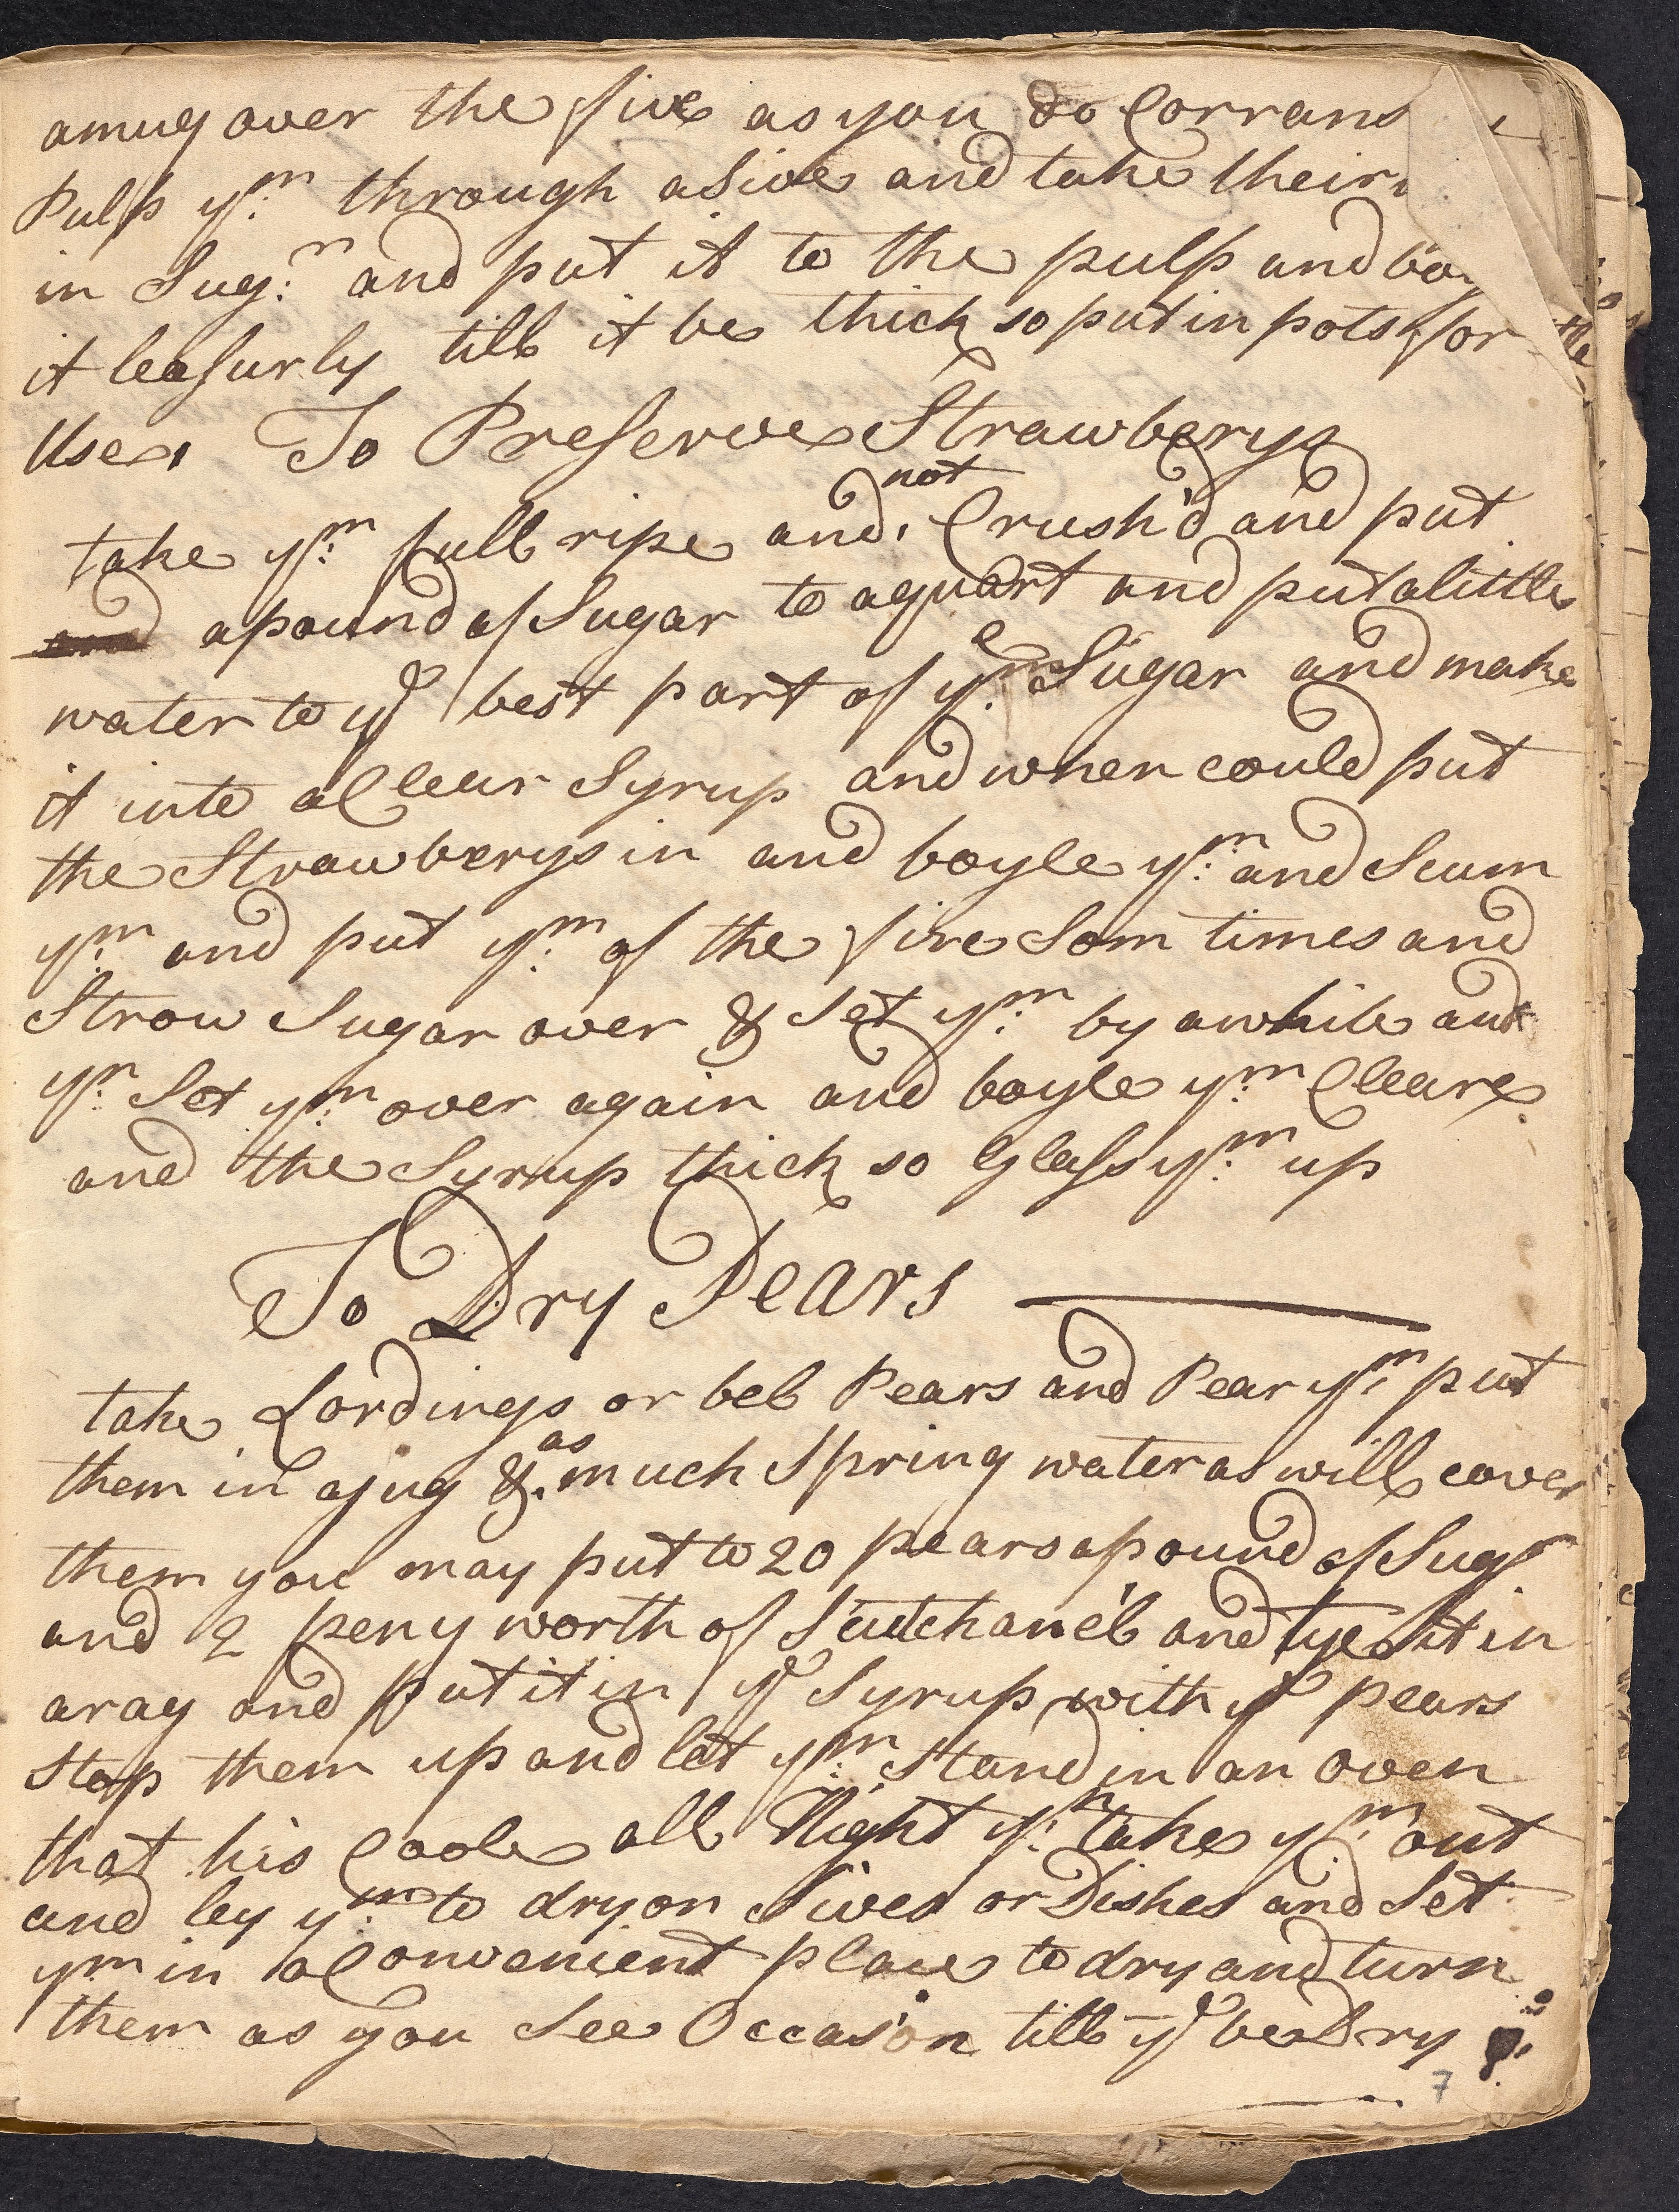 amug over the five as you do Corrans
Pulp ym through a Sive and take their
in Sugr and put it to the pulp and boy
it leasurly till it be thick so put in pots for
Use. To Preserve Strawberys
take ym full ripe and not Crush'd and put
and a pound of Sugar to a quart and put a little
water to ye best part of ye Sugar and make
it into a Clear Syrup and when could put
the Strawberys in and boyle ym and Scum
ym and put ym of the fire Som times and
Strow Sugar over & Set ym by a while and
yn Set ym over again and boyle ym Cleare
and the Syrup thick so Glass ym up
To Dry Pears
take Lordings or bell Pears and Pear ym put
them in a jug & as much Spring water as will cover
them you may put to 20 pears a pound of Sugr
and 2 peny worth of Scutchanell and tye it in
a rag and put it in ye Syrup with ye pears
Stop them up and let ym Stand in an Oven
that his Coole all Night yn take ym out
and ley ym to dry on Sives or Dishes and Set
ym in a Convenient place to dry and turn
them as you See Occasion till ye be Dry
7